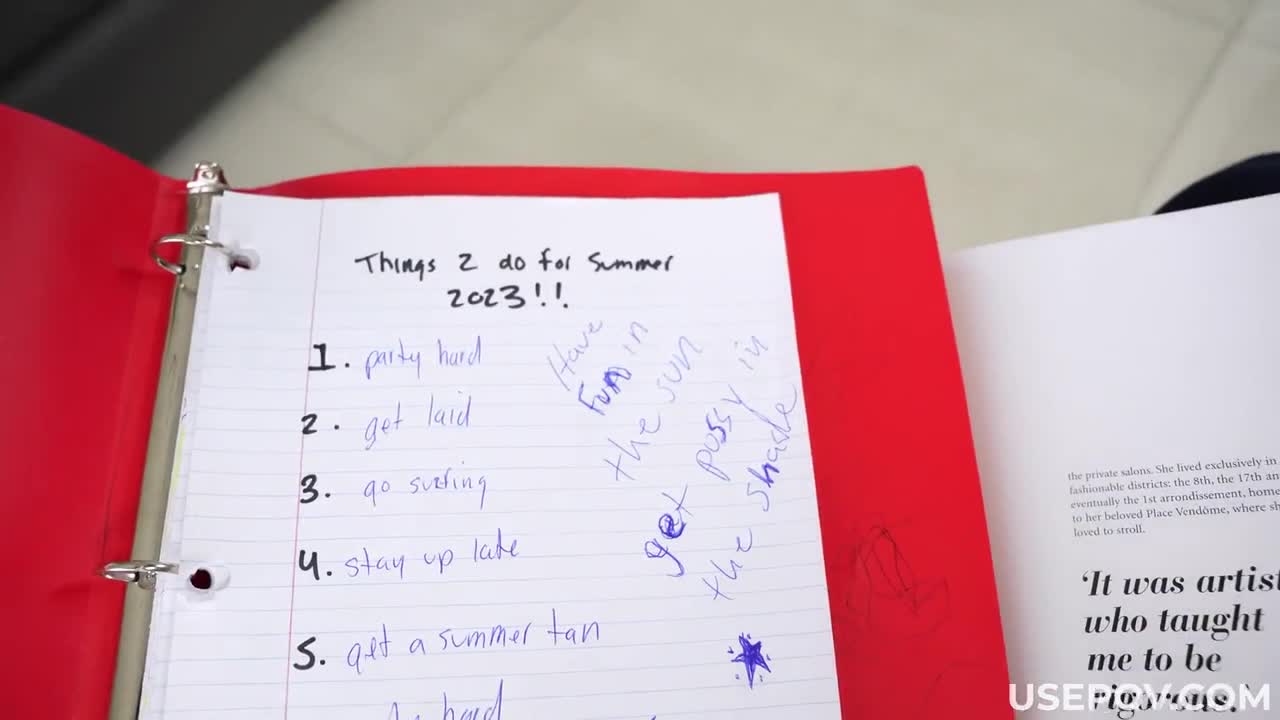 Things 2 do for Summer
2023!!
1. party hard
2. get laid
3. go surfing
4. stay up late
5. get a summer tan
hard
Have
Fun in
the sun
get pussy in
the shade
the private salons. She lived exclusively in
fashionable districts: the 8th, the 17th an
eventually the 1st arrondissement, home
to her beloved Place Vendôme, where sh
loved to stroll.
‘It was artist
who taught
me to be
rigorous.’
USEPOV.COM